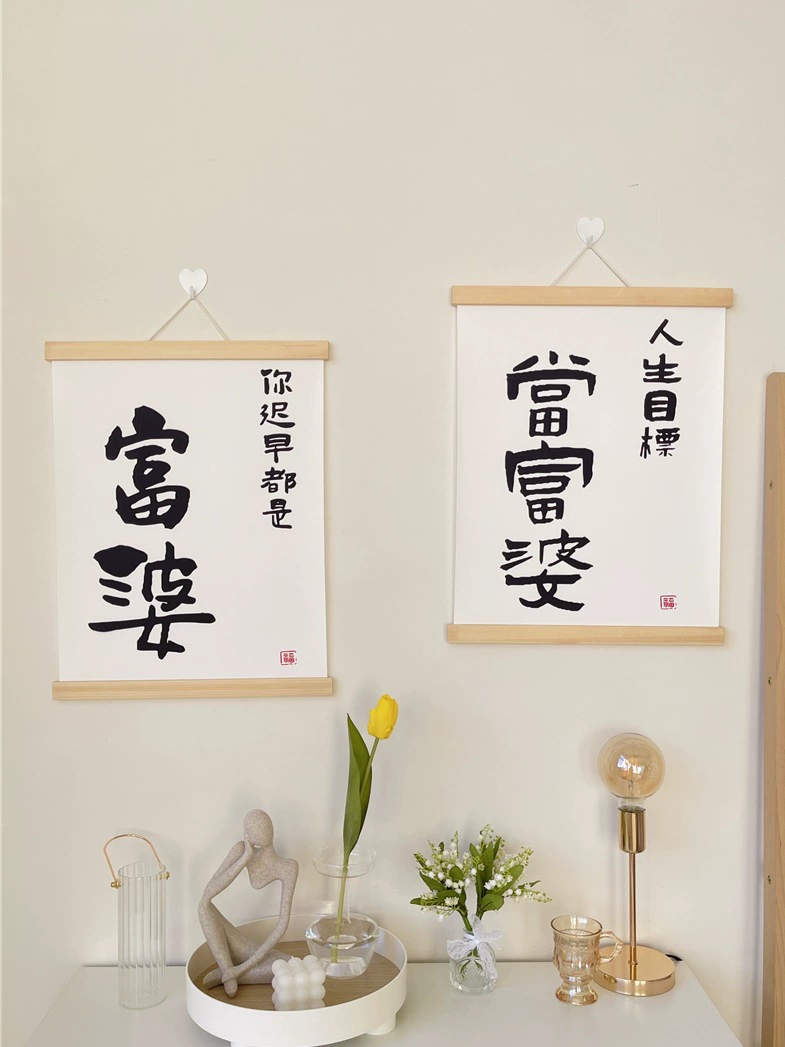 你迟早都是
富婆
福
人生目標
當富婆
福